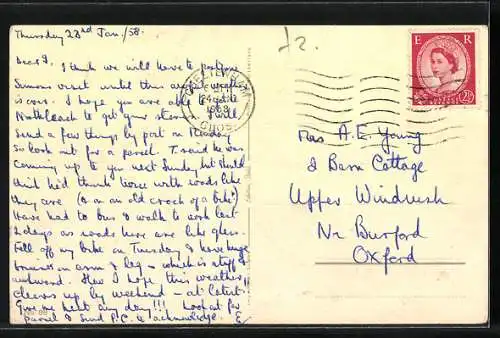 Thursday 23rd Jan./58.
Dear J. I think we will have to postpone
Simons visit until this weather
is over. I hope you are able to get to
Northleach to get your stores. I will
send a few things by post on Monday
so look out for a parcel. T. said he was
coming up to you next Sunday but should
think he'd think twice with roads like
they are (& on an old crock of a bike!)
Have had to bus & walk to work last
2 days as roads here are like glass.
Fell off my bike on Tuesday & have huge
bruises on arm & leg – which is stiff &
awkward. How I hope this weather
clears up by weekend – at latest.
Give me heat any day!!! Look out for
parcel & send P.C. to acknowledge. E
£2.
CHELTENHAM
GLOS
E R
POSTAGE REVENUE
2½D
Mrs A. E. Young
2 Barn Cottage
Upper Windrush
Nr Burford
Oxford